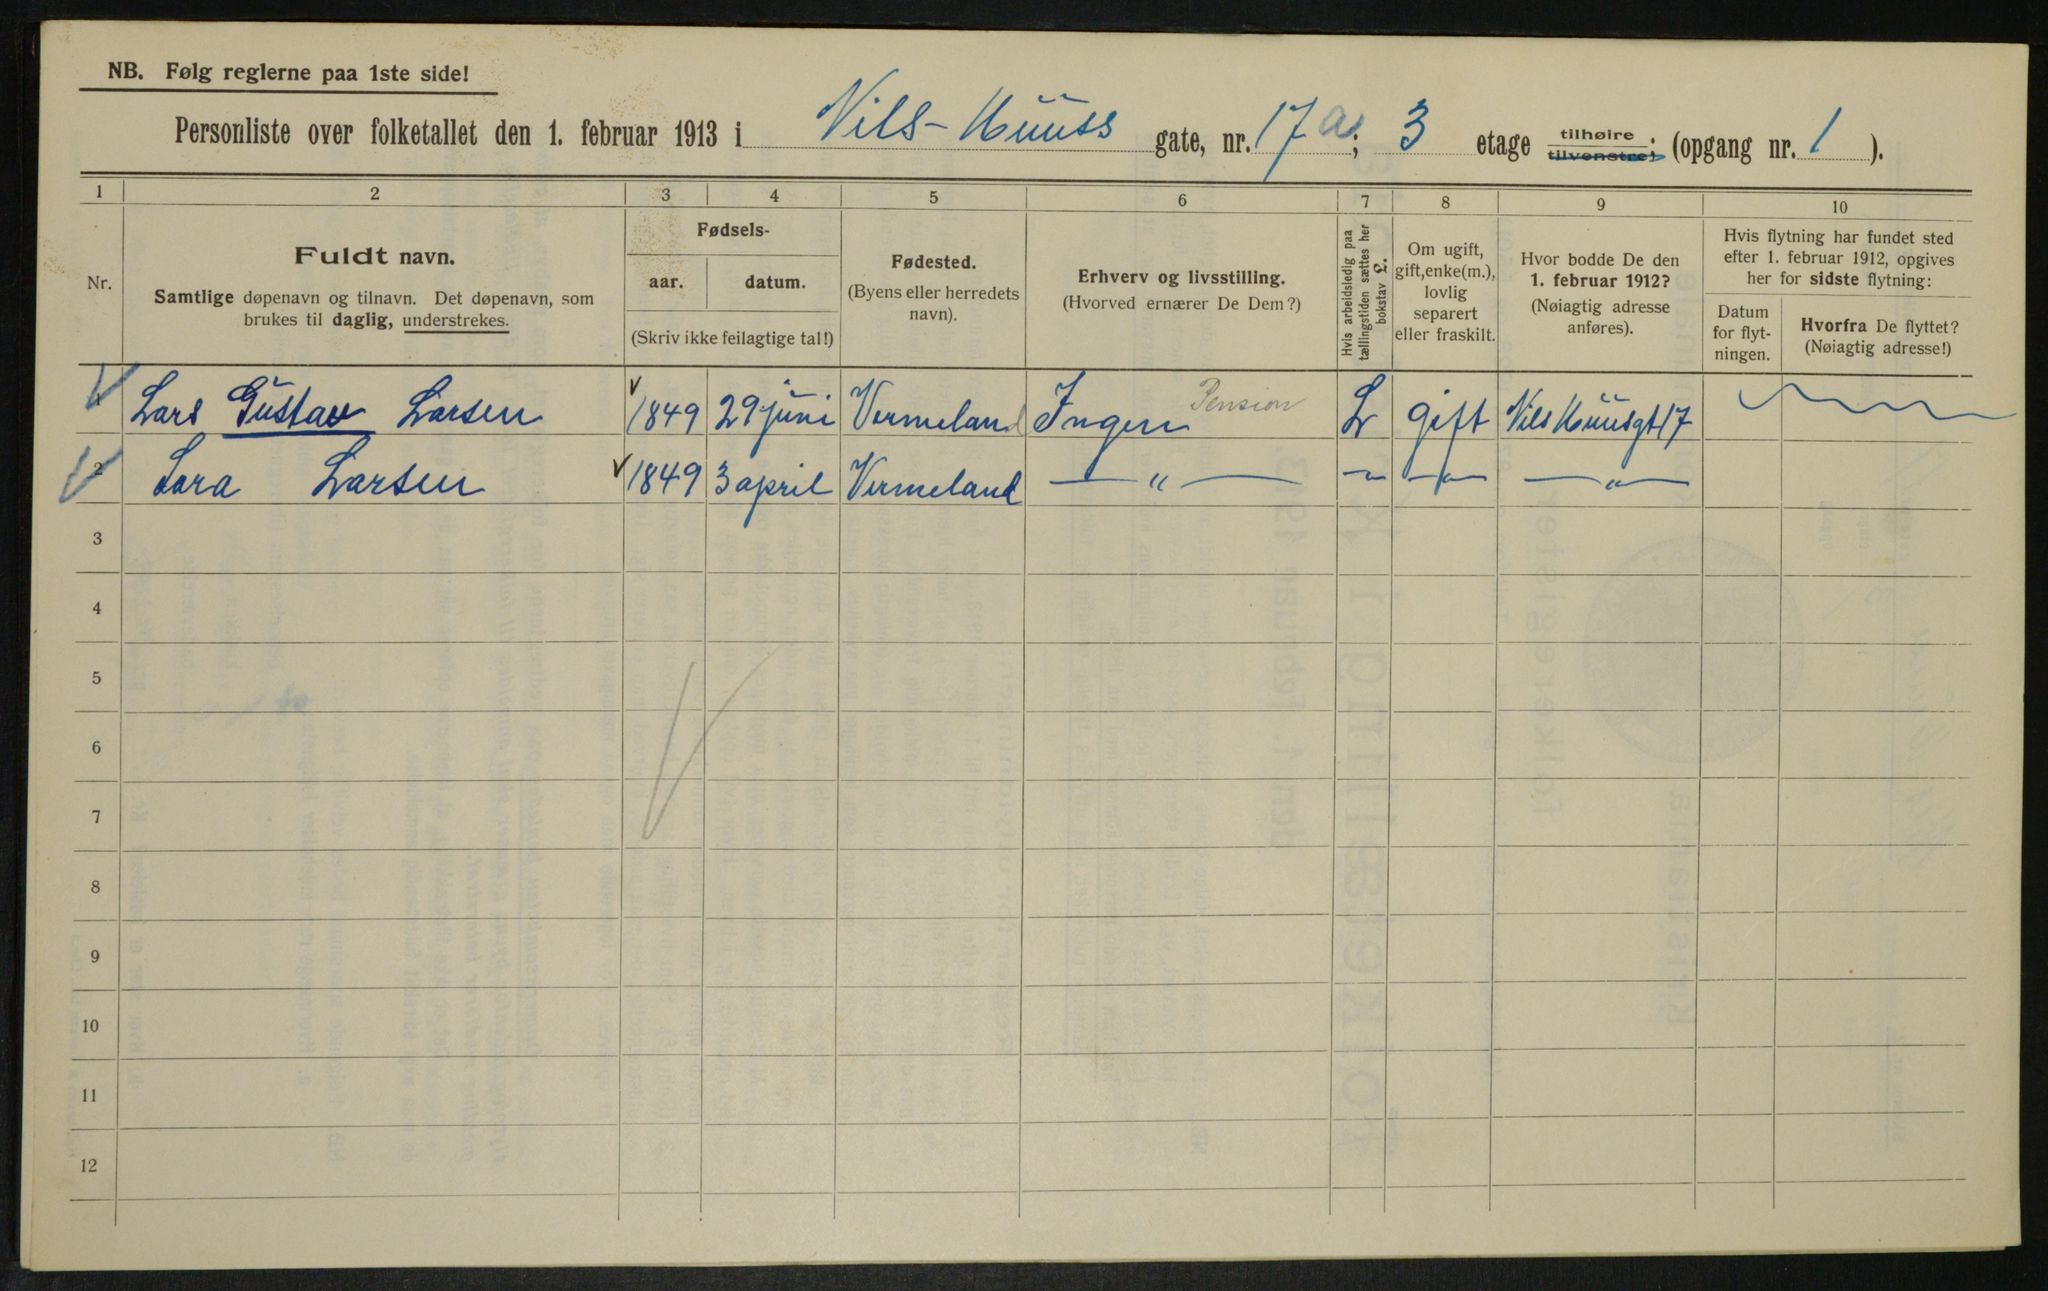 NB. Følg reglerne paa 1ste side!
Personliste over folketallet den 1. februar 1913 i Nils-Huuss gate, nr. 17a; 3 etage tilhøire tilvenstre; (opgang nr. 1).
1 2 3 4 5 6 7 8 9 10
Nr.
Fuldt navn.
Samtlige døpenavn og tilnavn. Det døpenavn, som
brukes til daglig, understrekes.
Fødsels-
aar. datum.
(Skriv ikke feilagtige tal!)
Fødested.
(Byens eller herredets
navn).
Erhverv og livsstilling.
(Hvorved ernærer De Dem?)
Hvis arbeidsledig paa
tællingstiden sættes her
bokstav L.
Om ugift,
gift, enke(m.),
lovlig
separert
eller fraskilt.
Hvor bodde De den
1. februar 1912?
(Nøiagtig adresse
anføres).
Hvis flytning har fundet sted
efter 1. februar 1912, opgives
her for sidste flytning:
Datum
for flyt-
ningen.
Hvorfra De flyttet?
(Nøiagtig adresse!)
1 Lars Gustav Larsen 1849 29 juni Vermeland Ingen Pension L gift Nils Huusgt 17
2 Lara Larsen 1849 3 april Vermeland — " — — " — — " — — " —
3
4
5
6
7
8
9
10
11
12